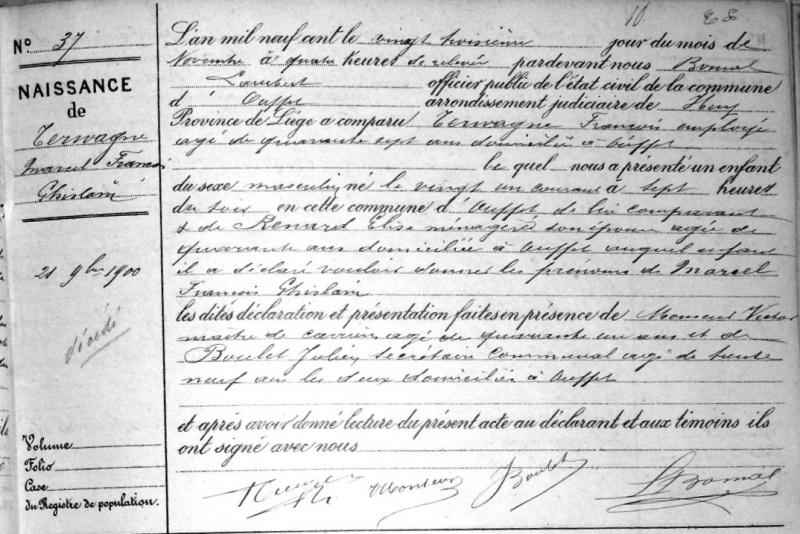 N° 37
NAISSANCE
de
Terwagne
Marcel Francois
Ghislain
21 9bre 1900
décédé
Volume
Folio
Case
du Registre de population.
10
L'an mil neuf cent le vingt troisième jour du mois de
Novembre à quatre heures de relevée pardevant nous Bomal
Lambert officier public de l'état civil de la commune
d' Ouffet arrondissement judiciaire de Huy
Province de Liége a comparu Terwagne Francois employé
agé de quarante sept ans domicilié à Ouffet
le quel nous a présenté un enfant
du sexe masculin né le vingt un courant à sept heures
du soir en cette commune d' Ouffet de lui comparant
& de Renard Elise ménagère son épouse agée de
quarante ans domiciliée à Ouffet auquel enfant
il a déclaré vouloir donner les prénoms de Marcel
Francois Ghislain
les dites déclaration et présentation faites en présence de Monsieur Victor
maître de carrière agé de quarante un ans et de
Boulet Julien secrétaire communal agé de trente
neuf ans les deux domiciliés à Ouffet
et après avoir donné lecture du présent acte au déclarant et aux témoins ils
ont signé avec nous
Monsieur JBoulet LBomal